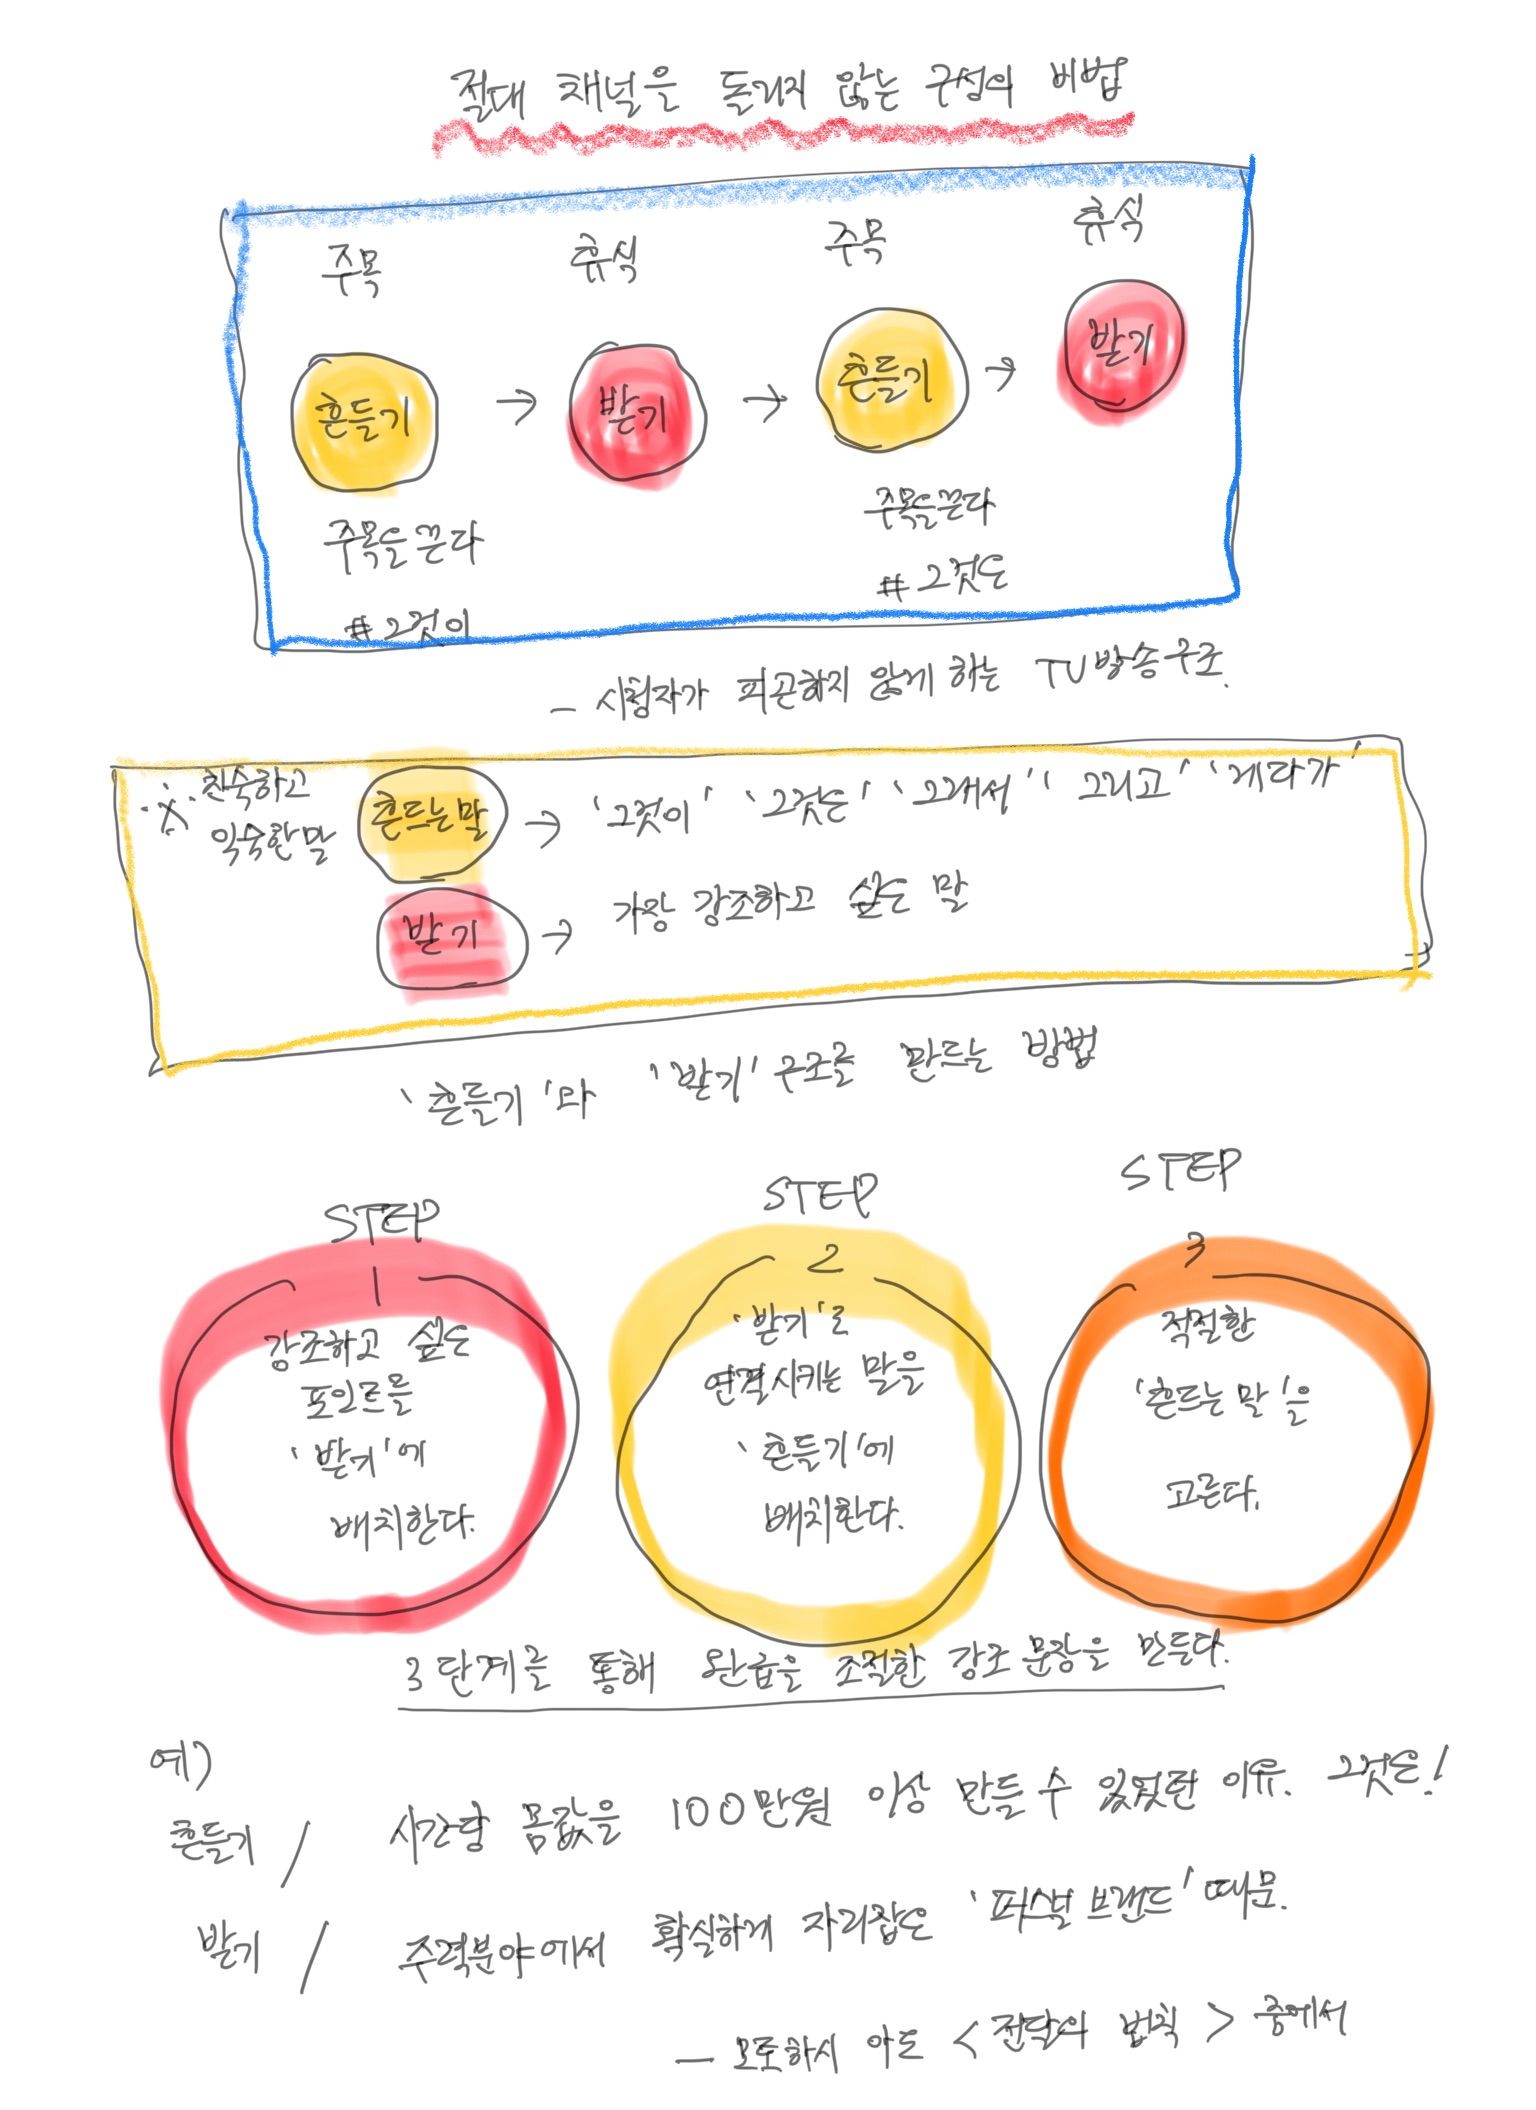 절대 채널을 돌리지 않는 구성의 비법
주목 휴식 주목 휴식
흔들기 → 받기 → 흔들기 → 받기
주목을끈다 주목을끈다
#그것이 #그것은
– 시청자가 피곤하지 않게 하는 TV방송구조.
※ 친숙하고
익숙한말
흔드는말 → '그것이' '그것은' '그래서' '그리고' '게다가'
받기 → 가장 강조하고 싶은 말
'흔들기'와 '받기' 구조를 만드는 방법
STEP
1
강조하고 싶은
포인트를
'받기'에
배치한다.
STEP
2
'받기'로
연결시키는 말을
'흔들기'에
배치한다.
STEP
3
적절한
'흔드는 말'을
고른다.
3단계를 통해 완급을 조절한 강조 문장을 만든다.
예)
흔들기 / 시간당 몸값을 100만원 이상 만들 수 있었던 이유. 그것은!
받기 / 주력분야에서 확실하게 자리잡은 '퍼스널 브랜드' 때문.
– 모토하시 아도 <전달의 법칙> 중에서